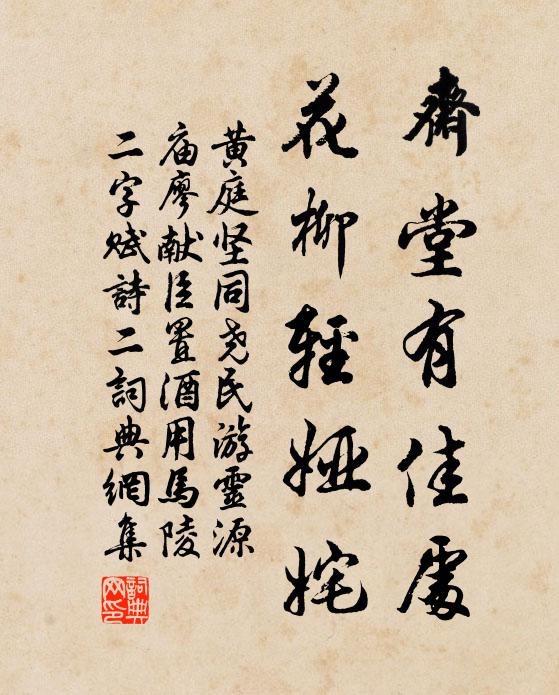 齋堂有佳處
花柳輕婭姹
黄庭坚同尧民游靈源
庙廖献臣置酒用馬陵
二字赋詩二詞典網集
詞典網印